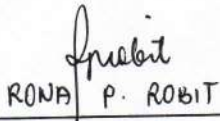 RONA P. ROBIT